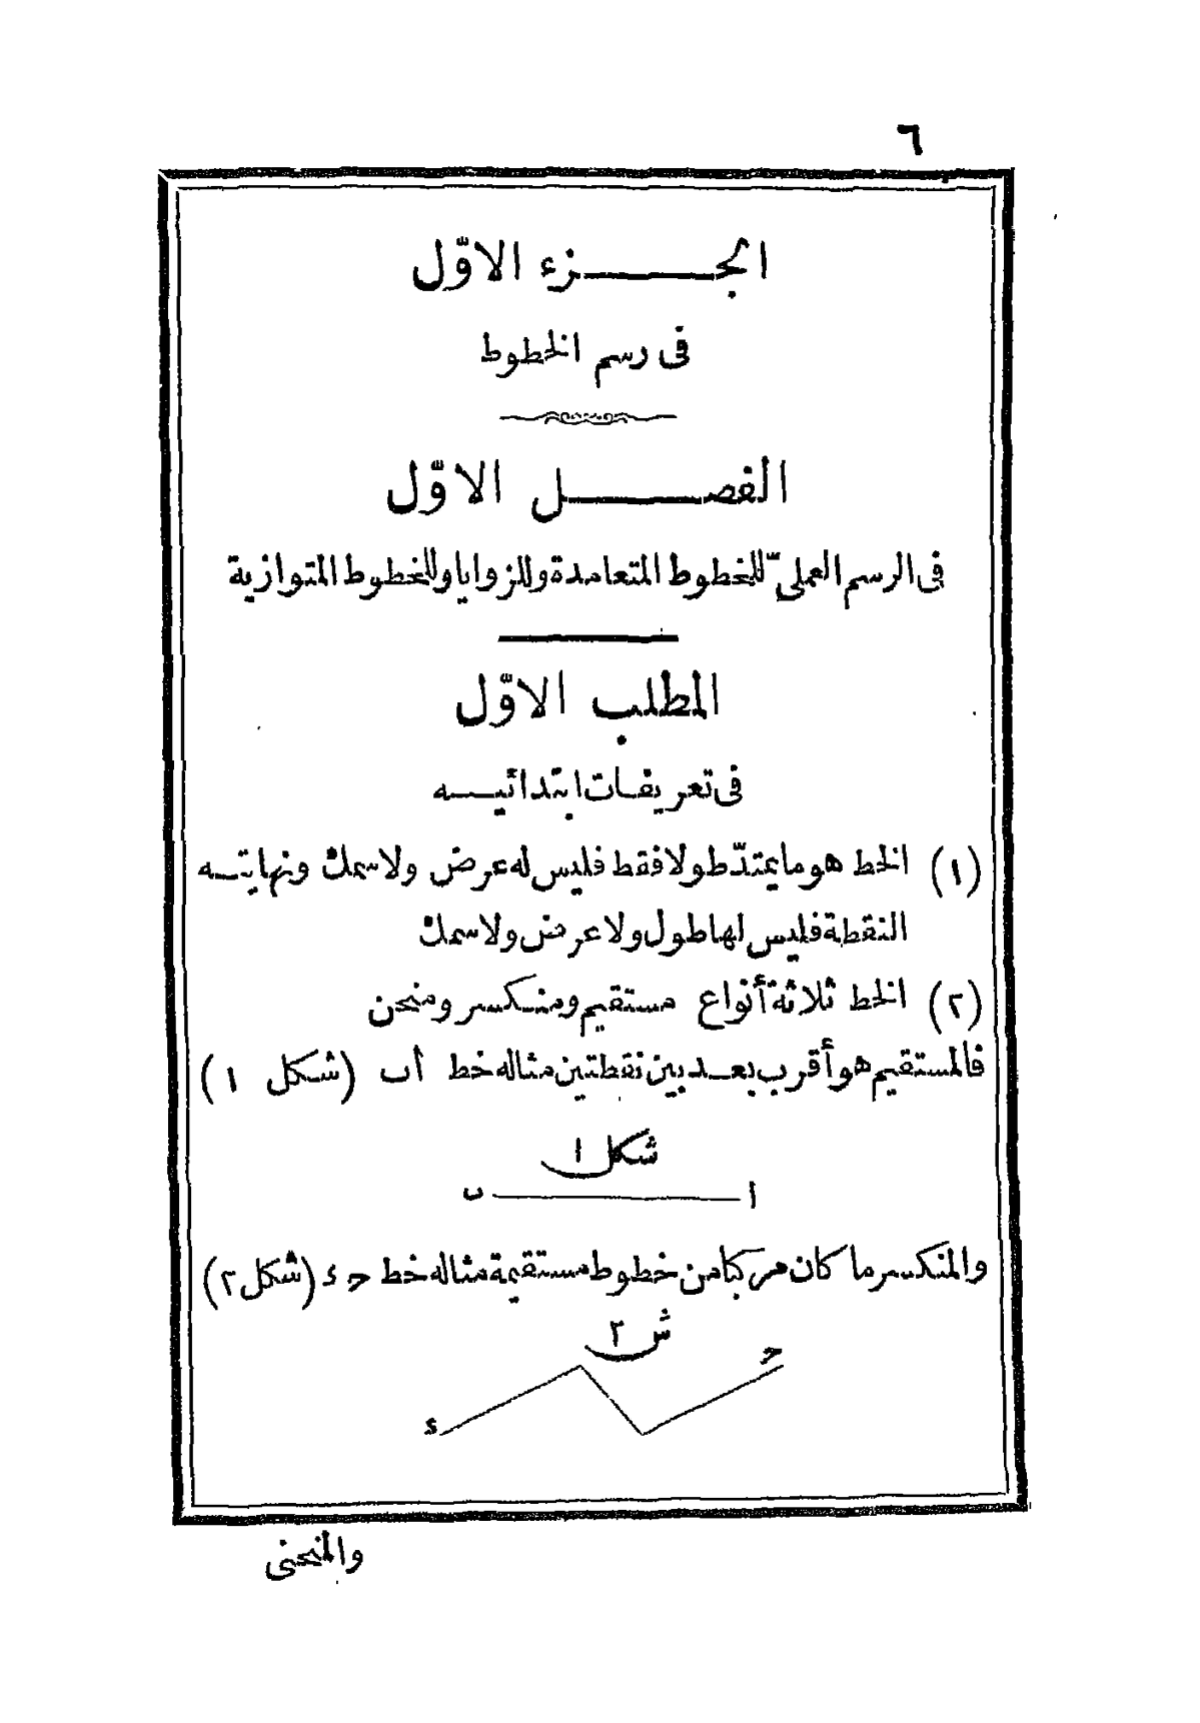 ٦
الجزء الاوّل
فى رسم الخطوط
الفصل الاوّل
فى الرسم العملىّ للخطوط المتعامدة وللزوايا وللخطوط المتوازية
المطلب الاوّل
فى تعريفات ابتدائيه
(١) الخط هو ما يمتدّ طولا فقط فليس له عرض ولا سمك ونهايته
النقطة فليس لها طول ولا عرض ولا سمك
(٢) الخط ثلاثة أنواع مستقيم ومنكسر ومنحن
فالمستقيم هو أقرب بعد بين نقطتين مثاله خط أ ب (شكل ١)
شكل ١
أ ب
والمنكسر ما كان مركبا من خطوط مستقيمة مثاله خط ح ء (شكل ٢)
ش ٢
ح
ء
والمنحنى